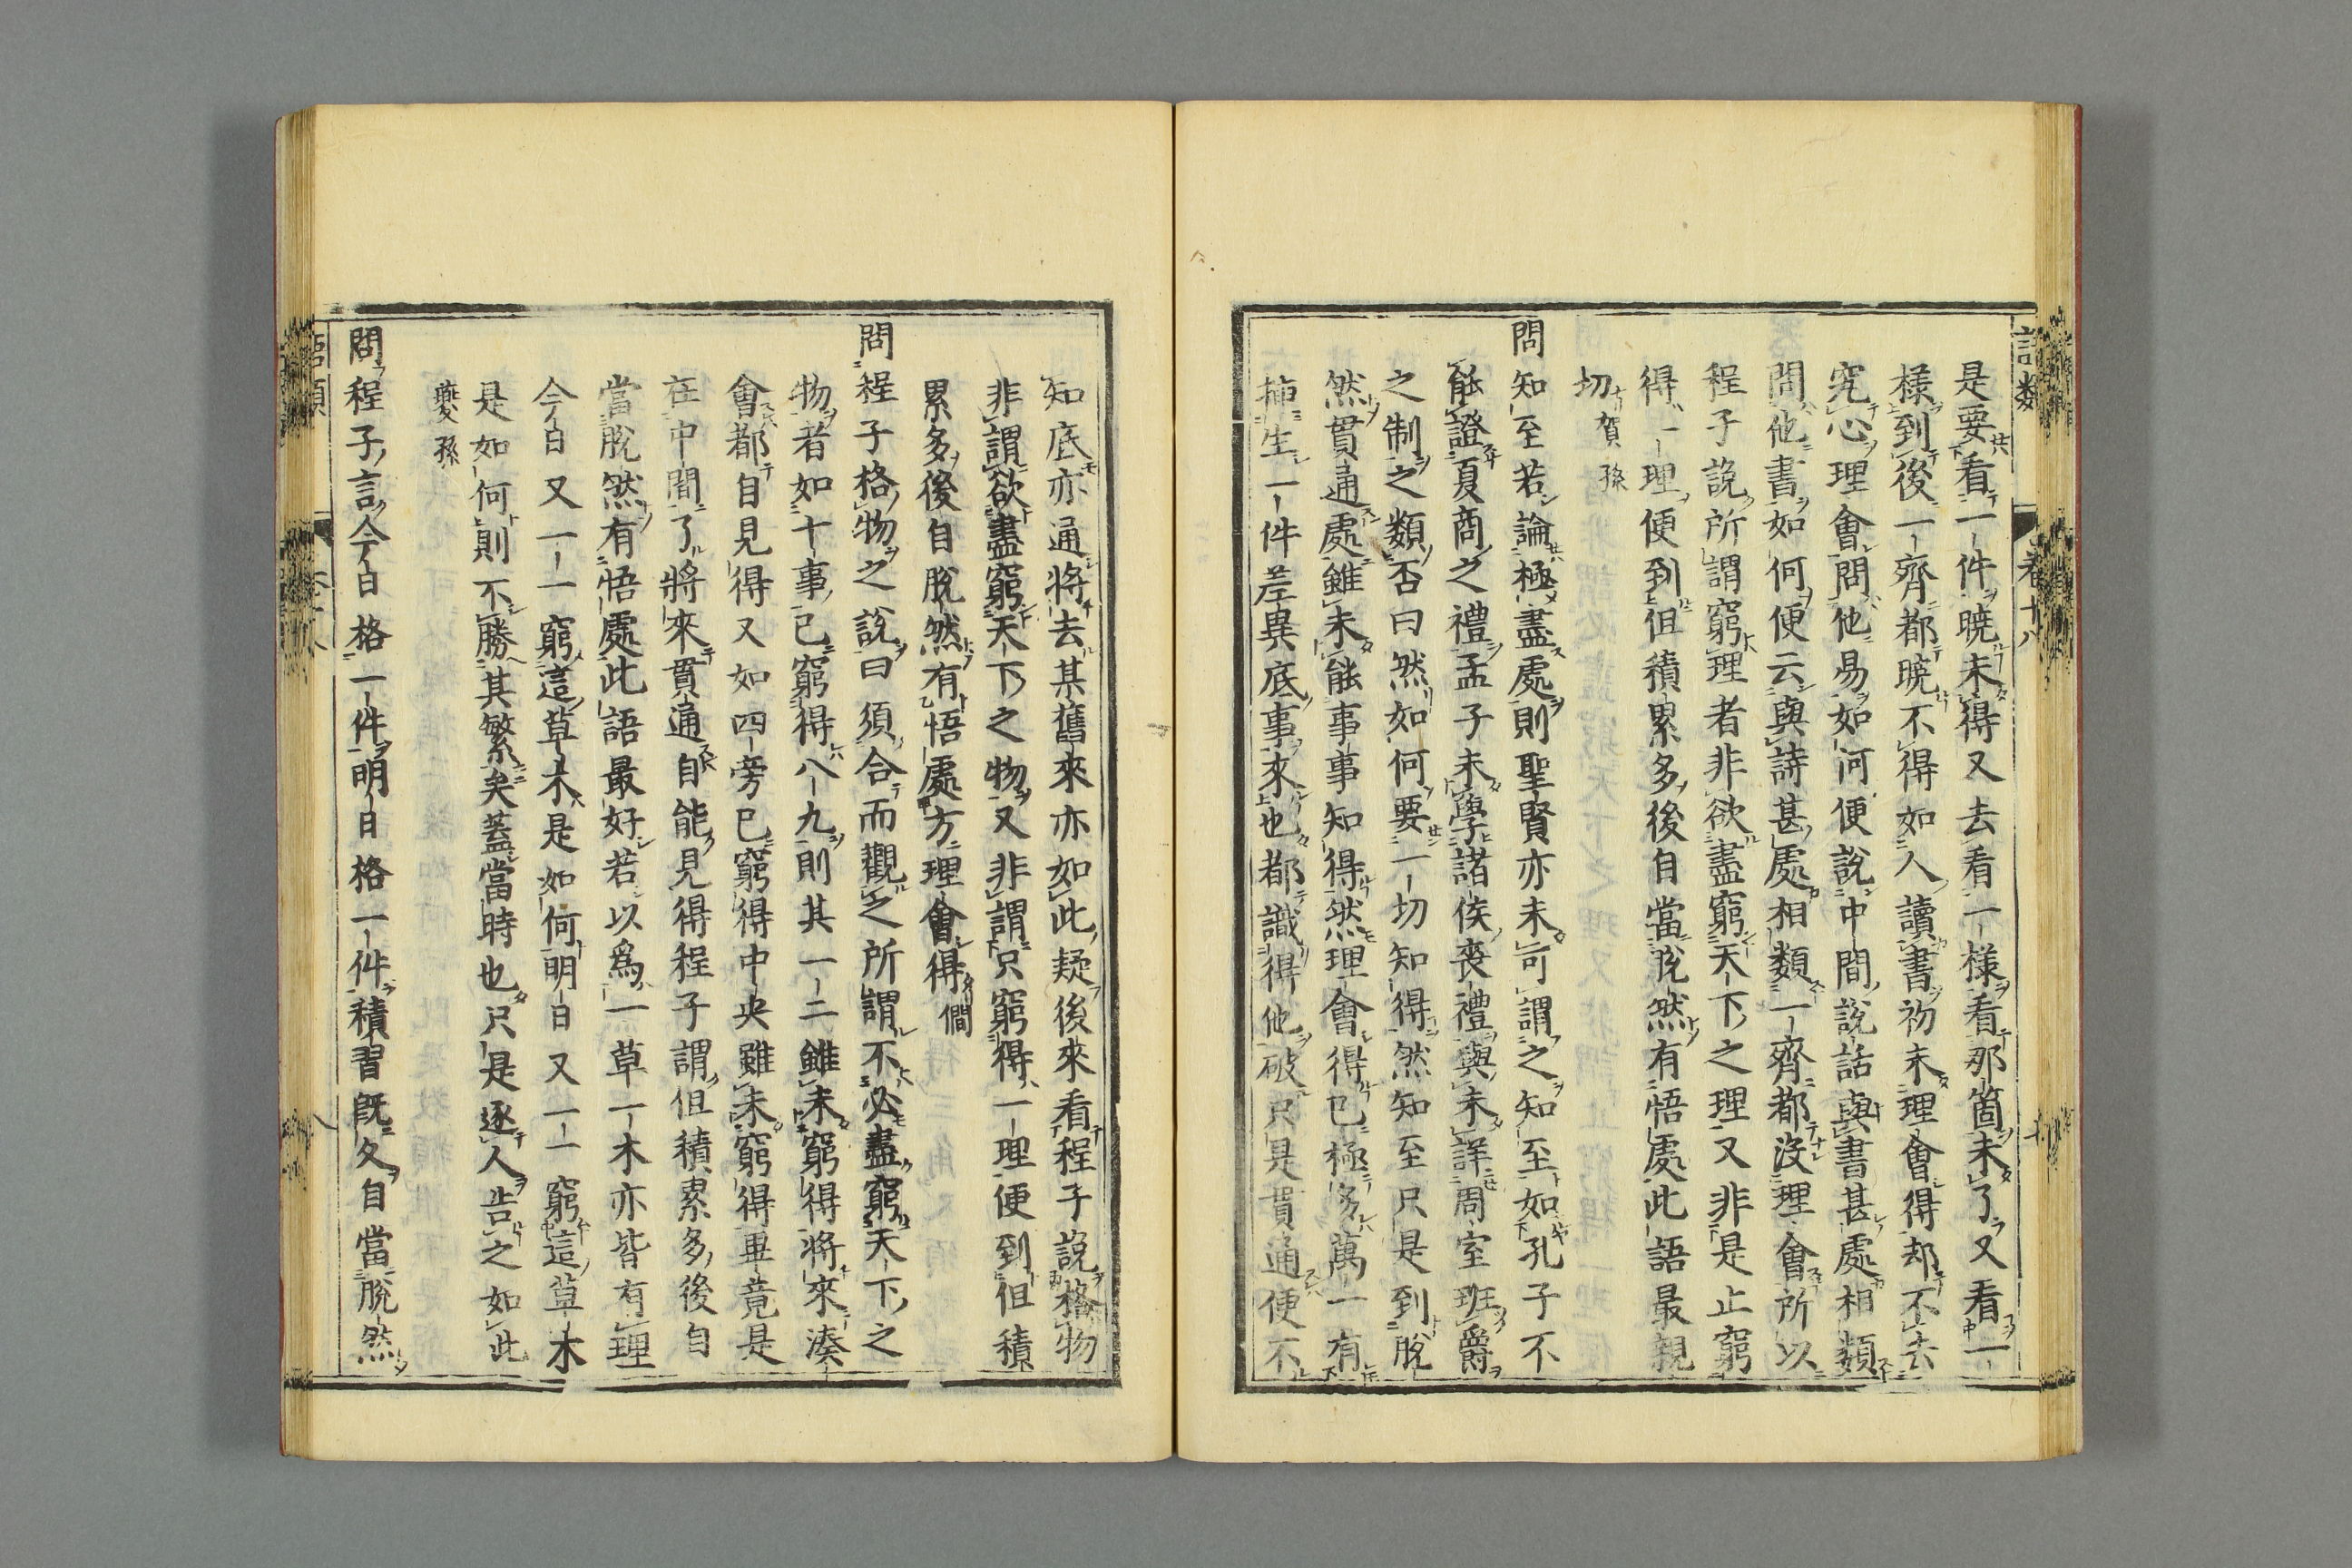 語類 卷十八
是要看一件曉未得又去看一樣看那箇未了又看一
樣到後一齊都曉不得如人讀書初未理會得却不去
究心理會問他易如何便說中間說話與書甚處相類
問他書如何便云與詩甚處相類一齊都沒理會所以
程子說所謂窮理者非欲盡窮天下之理又非是止窮
得一理便到但積累多後自當脫然有悟處此語最親
切賀孫
問知至若論極盡處則聖賢亦未可謂之知至如孔子不
能證夏商之禮孟子未學諸侯喪禮與未詳周室班爵
之制之類否曰然如何要一切知得然知至只是到脫
然貫通處雖未能事事知得然理會得已極多萬一有
插生一件差異底事來也都識得他破只是貫通便不
知底亦通將去某舊來亦如此疑後來看程子說格物
非謂欲盡窮天下之物又非謂只窮得一理便到但積
累多後自脫然有悟處方理會得僩
問程子格物之說曰須合而觀之所謂不必盡窮天下之
物者如十事已窮得八九則其一二雖未窮得將來湊
會都自見得又如四旁已窮得中央雖未窮得畢竟是
在中間了將來貫通自能見得程子謂但積累多後自
當脫然有悟處此語最好若以為一草一木亦皆有理
今日又一一窮這草木是如何明日又一一窮這草木
是如何則不勝其繁矣蓋當時也只是逐人告之如此
夔孫
問程子言今日格一件明日格一件積習既久自當脫然
語類